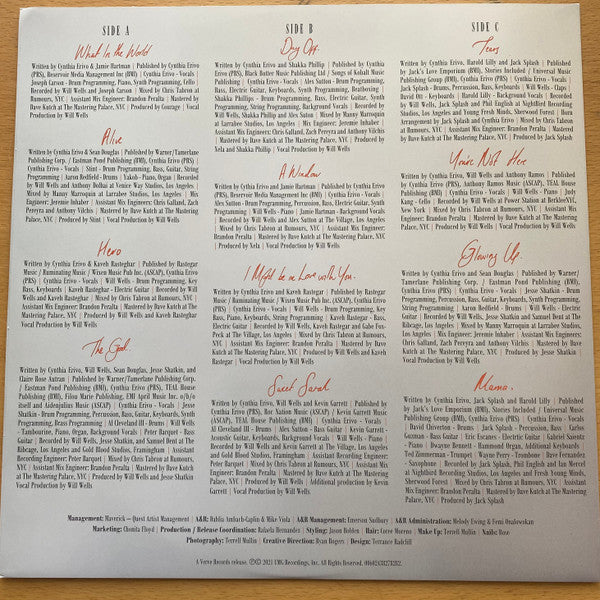 SIDE A
What In the World
Written by Cynthia Erivo & Jamie Hartman | Published by Cynthia Erivo
(PRS), Reservoir Media Management Inc (BMI) | Cynthia Erivo - Vocals |
Joseph Carson - Drum Programming, Piano, Synth Programming, Cello |
Recorded by Will Wells and Joseph Carson | Mixed by Chris Tabron at
Rumours, NYC | Assistant Mix Engineer: Brandon Peralta | Mastered by
Dave Kutch at The Mastering Palace, NYC | Produced by Courage | Vocal
Production by Will Wells
Alive
Written by Cynthia Erivo & Sean Douglas | Published by Warner/Tamerlane
Publishing Corp. / Eastman Pond Publishing (BMI), Cynthia Erivo (PRS) |
Cynthia Erivo - Vocals | Stint - Drum Programming, Bass, Guitar, String
Programming | Aaron Redfield - Drums | Yakob - Piano, Organ | Recorded
by Will Wells and Anthony Dolhai at Venice Way Studios, Los Angeles |
Mixed by Manny Marroquin at Larrabee Studios, Los Angeles | Mix
Engineer: Jeremie Inhaber | Assistant Mix Engineers: Chris Galland, Zach
Pereyra and Anthony Vilchis | Mastered by Dave Kutch at The Mastering
Palace, NYC | Produced by Stint | Vocal Production by Will Wells
Hero
Written by Cynthia Erivo & Kaveh Rasteghar | Published by Rastegar
Music / Ruminating Music / Wixen Music Pub Inc. (ASCAP), Cynthia Erivo
(PRS) | Cynthia Erivo - Vocals | Will Wells - Drum Programming, Key
Bass, Keyboards | Kaveh Rasteghar - Electric Guitar | Recorded by Will
Wells and Kaveh Rasteghar | Mixed by Chris Tabron at Rumours, NYC |
Assistant Mix Engineer: Brandon Peralta | Mastered by Dave Kutch at
The Mastering Palace, NYC | Produced by Will Wells and Kaveh Rasteghar
Vocal Production by Will Wells
The Good
Written by Cynthia Erivo, Will Wells, Sean Douglas, Jesse Shatkin, and
Claire Rose Autran | Published by Warner/Tamerlane Publishing Corp.
/ Eastman Pond Publishing (BMI), Cynthia Erivo (PRS), TEAL House
Publishing (BMI), Filou Marie Publishing, EMI April Music Inc. o/b/o
itself and Aidenjulius Music (ASCAP) | Cynthia Erivo - Vocals | Jesse
Shatkin - Drum Programming, Percussion, Bass, Guitar, Keyboards, Synth
Programming, Brass Programming | Al Cleveland III - Drums | Will Wells
- Tambourine, Piano, Organ, Background Vocals | Edwin Vazquez - Bass
Guitar | Recorded by Will Wells, Jesse Shatkin, and Samuel Dent at The
Ribcage, Los Angeles and Gold Blood Studios, Framingham | Assistant
Recording Engineer: Peter Barquet | Mixed by Chris Tabron at Rumours,
NYC | Assistant Mix Engineer: Brandon Peralta | Mastered by Dave Kutch
at The Mastering Palace, NYC | Produced by Will Wells and Jesse Shatkin
Vocal Production by Will Wells
SIDE B
Day Off
Written by Cynthia Erivo and Shakka Phillip | Published by Cynthia Erivo
(PRS), Black Butter Music Publishing Ltd / Songs of Kobalt Music
Publishing | Cynthia Erivo - Vocals | Alex Sutton - Drum Programming,
Bass, Electric Guitar, Keyboards, Synth Programming, Beatboxing |
Shakka Phillips - Drum Programming, Bass, Electric Guitar, Synth
Programming, String Programming, Background Vocals | Recorded by Will
Wells, Shakka Phillip and Alex Sutton | Mixed by Manny Marroquin
at Larrabee Studios, Los Angeles | Mix Engineer: Jeremie Inhaber |
Assistant Mix Engineers: Chris Galland, Zach Pereyra and Anthony Vilchis |
Mastered by Dave Kutch at The Mastering Palace, NYC | Produced by
Xela and Shakka Phillip | Vocal Production by Will Wells
A Window
Written by Cynthia Erivo and Jamie Hartman | Published by Cynthia Erivo
(PRS), Reservoir Media Management, Inc (BMI) | Cynthia Erivo - Vocals |
Alex Sutton - Drum Programming, Percussion, Bass, Electric Guitar, Synth
Programming | Will Wells - Piano | Jamie Hartman - Background Vocals |
Recorded by Will Wells and Alex Sutton at The Village, Los Angeles |
Mixed by Chris Tabron at Rumours, NYC | Assistant Mix Engineer: Brandon
Peralta | Mastered by Dave Kutch at The Mastering Palace, NYC |
Produced by Xela | Vocal Production by Will Wells
I Might be in Love with You.
Written by Cynthia Erivo and Kaveh Rastegar | Published by Rastegar
Music / Ruminating Music / Wixen Music Pub Inc. (ASCAP), Cynthia Erivo
(PRS) | Cynthia Erivo - Vocals | Will Wells - Drum Programming, Key
Bass, Piano, Keyboards, String Programming | Kaveh Rastegar - Bass,
Electric Guitar | Recorded by Will Wells, Kaveh Rastegar and Gabe Fox-
Peck at The Village, Los Angeles | Mixed by Chris Tabron at Rumours,
NYC | Assistant Mix Engineer: Brandon Peralta | Mastered by Dave
Kutch at The Mastering Palace, NYC | Produced by Will Wells and Kaveh
Rastegar | Vocal Production by Will Wells
Sweet Sarah
Written by Cynthia Erivo, Will Wells and Kevin Garrett | Published by
Cynthia Erivo (PRS), Roc Nation Music (ASCAP) / Kevin Garrett Music
(ASCAP), TEAL House Publishing (BMI) | Cynthia Erivo - Vocals |
Al Cleveland III - Drums | Will Wells - Bass | Kevin Garrett -
Acoustic Guitar, Keyboards, Background Vocals | Will Wells - Piano |
Recorded by Will Wells and Kevin Garrett at The Village, Los Angeles
and Gold Blood Studios, Framingham | Assistant Recording Engineer:
Peter Barquet | Mixed by Chris Tabron at Rumours, NYC | Assistant Mix
Engineer: Brandon Peralta | Mastered by Dave Kutch at The Mastering
Palace, NYC | Produced by Will Wells | Additional production by Kevin
Garrett | Vocal Production by Will Wells
SIDE C
Tears
Written by Cynthia Erivo, Harold Lilly and Jack Splash | Published
by Jack's Love Emporium (BMI), Stories Included / Universal Music
Publishing Group (BMI), Cynthia Erivo (PRS) | Cynthia Erivo - Vocals |
Jack Splash - Drums, Percussion, Bass, Keys | Will Wells - Claps |
David Ott - Keyboards | Harold Lilly - Background Vocals | Recorded by
Will Wells, Jack Splash and Phil English at NightBird Recording
Studios, Los Angeles and Young Fresh Minds, Sherwood Forest | Horn
Arrangement by Jack Splash and Cynthia Erivo | Mixed by Chris Tabron at
Rumours, NYC | Assistant Mix Engineer: Brandon Peralta | Mastered by
Dave Kutch at The Mastering Palace, NYC | Produced by Jack Splash
You're Not Here
Written by Cynthia Erivo, Will Wells and Anthony Ramos | Published by
Cynthia Erivo (PRS), Anthony Ramos Music (ASCAP), TEAL House
Publishing (BMI) | Cynthia Erivo - Vocals | Will Wells - Piano | Judy
Kang - Cello | Recorded by Will Wells at Power Station at BerkleeNYC,
New York | Mixed by Chris Tabron at Rumours, NYC | Assistant Mix
Engineer: Brandon Peralta | Mastered by Dave Kutch at The Mastering
Palace, NYC | Produced by Will Wells | Vocal Production by Will Wells
Glowing Up.
Written by Cynthia Erivo and Sean Douglas | Published by Warner/
Tamerlane Publishing Corp. / Eastman Pond Publishing (BMI), Cynthia
Erivo (PRS) | Cynthia Erivo - Vocals | Jesse Shatkin - Drum
Programming, Percussion, Bass, Guitar, Keyboards, Synth Programming,
String Programming | Aaron Redfield - Drums | Will Wells - Electric
Guitar | Recorded by Will Wells, Jesse Shatkin and Samuel Dent at The
Ribcage, Los Angeles | Mixed by Manny Marroquin at Larrabee Studios, Los
Angeles | Mix Engineer: Jeremie Inhaber | Assistant Mix Engineers: Chris
Galland, Zach Pereyra and Anthony Vilchis | Mastered by Dave Kutch
at The Mastering Palace, NYC | Produced by Jesse Shatkin
Vocal Production by Will Wells
Mama.
Written by Cynthia Erivo, Jack Splash and Harold Lilly | Published by
Jack's Love Emporium (BMI), Stories Included / Universal Music
Publishing Group (BMI), Cynthia Erivo (PRS) | Cynthia Erivo - Vocals
| David Chiverton - Drums | Jack Splash - Percussion, Bass | Carlos
Guzman - Bass Guitar | Eric Escanes - Electric Guitar | Gabriele Sainte-
Rose - Piano | Dwayne Bennett - Hammond Organ, Additional Keyboards
Ted Zimmerman - Trumpet | Wayne Perry - Trombone | Dave Fernandez
- Saxophone | Recorded by Jack Splash, Phil English and Ian Mercel
at Nightbird Recording Studios, Los Angeles and Fresh Young Minds,
Sherwood Forest | Mixed by Chris Tabron at Rumours, NYC | Assistant
Mix Engineer: Brandon Peralta | Mastered by Dave Kutch at The
Mastering Palace, NYC | Produced by Jack Splash
Management: Maverick – Quest Artist Management | A&R: Dahlia Ambach-Caplin & Mike Viola | A&R Management: Emerson Sudbury | A&R Administration: Melody Ewing & Femi Ovalewokan
Marketing: Chonita Floyd | Production / Release Coordination: Rafaela Hernandes | Styling: Jason Bolden | Hair: Coree Moreno | Make Up: Terrell Mullin | Nails: Rose
Photography: Terrell Mullin | Creative Direction: Ryan Rogers | Design: Torrance Radcliff
A Verve Records release. ℗© 2021 UMG Recordings, Inc. All Rights Reserved.